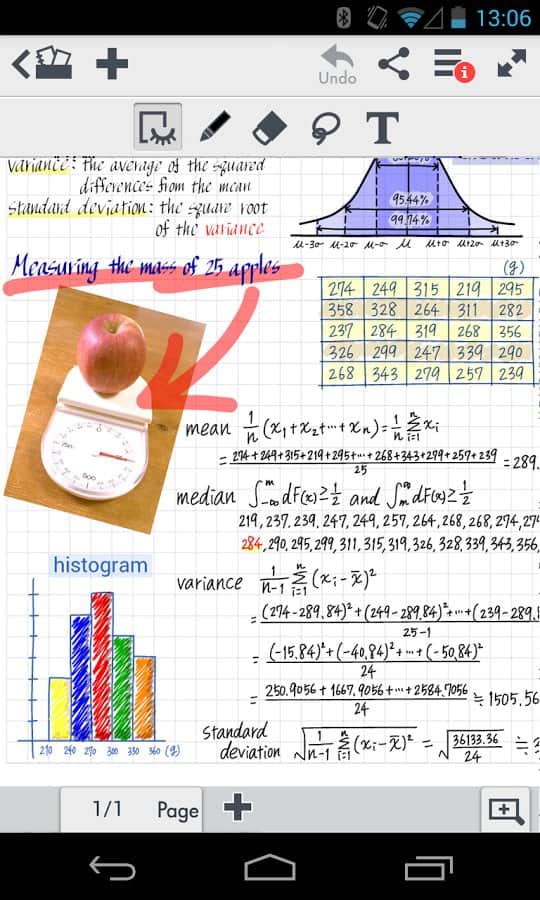 13:06
Undo
T
variance: the average of the squared
differences from the mean
standard deviation: the square root
of the variance
95.44%
99.74%
μ-3σ μ-2σ μ-σ μ μ+σ μ+2σ μ+3σ
Measuring the mass of 25 apples
(g)
274 249 315 219 295
358 328 264 311 282
237 284 319 268 356
326 299 247 339 290
268 343 279 257 239
mean 1/n (x₁+x₂+…+xₙ)=1/n Σⁿᵢ₌₁ xᵢ
= 274+249+315+219+295+…+268+343+279+257+239 / 25 = 289.
median ∫_{-∞}^{m} dF(x)≥1/2 and ∫_{m}^{∞} dF(x)≥1/2
219, 237, 239, 247, 249, 257, 264, 268, 268, 274, 27
284, 290, 295, 299, 311, 315, 319, 326, 328, 339, 343, 356,
histogram
variance 1/n-1 Σⁿᵢ₌₁ (xᵢ-x̄)²
= (274-289.84)²+(249-289.84)²+…+(239-289.8 / 25-1
= (-15.84)²+(-40.84)²+…+(-50.84)² / 24
= 250.9056+1667.9056+…+2584.7056 / 24 ≒ 1505.56
standard
deviation √(1/n-1 Σⁿᵢ₌₁ (xᵢ-x̄)²) = √(36133.36/24) ≒
210 240 270 300 330 360 (g)
1/1 Page